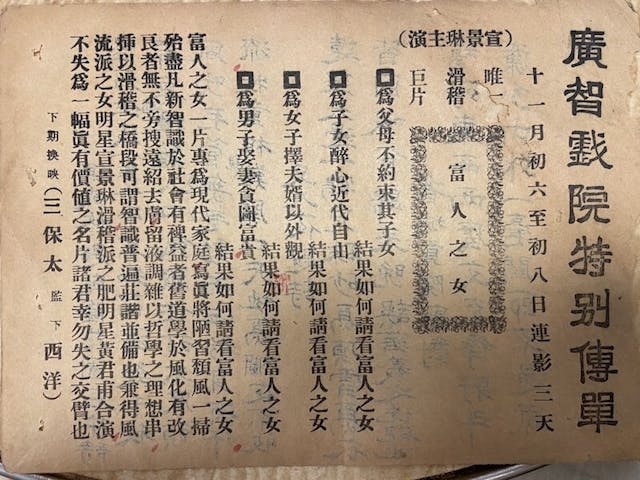 廣智戲院特別傳單
十一月初六至初八日連影三天
富人之女
唯一
滑稽
巨片
（宣景琳主演）
爲父母不約束其子女
結果如何請看富人之女
爲子女醉心近代自由
結果如何請看富人之女
爲女子擇夫婿以外觀
結果如何請看富人之女
爲男子娶妻貪圖富貴
結果如何請看富人之女
富人之女一片專爲現代家庭寫眞將陋習頹風一掃
殆盡凡新智識於社會有裨益者舊道學於風化有改
良者無不旁搜遠紹去膚留液調雜以哲學之理想串
揷以滑稽之橋段可謂智識普遍莊諧並備也兼得風
流派之女明星宣景琳滑稽派之肥明星黃君甫合演
不失爲一幅眞有價值之名片諸君幸勿失之交臂也
下期換映（三保太監下西洋）